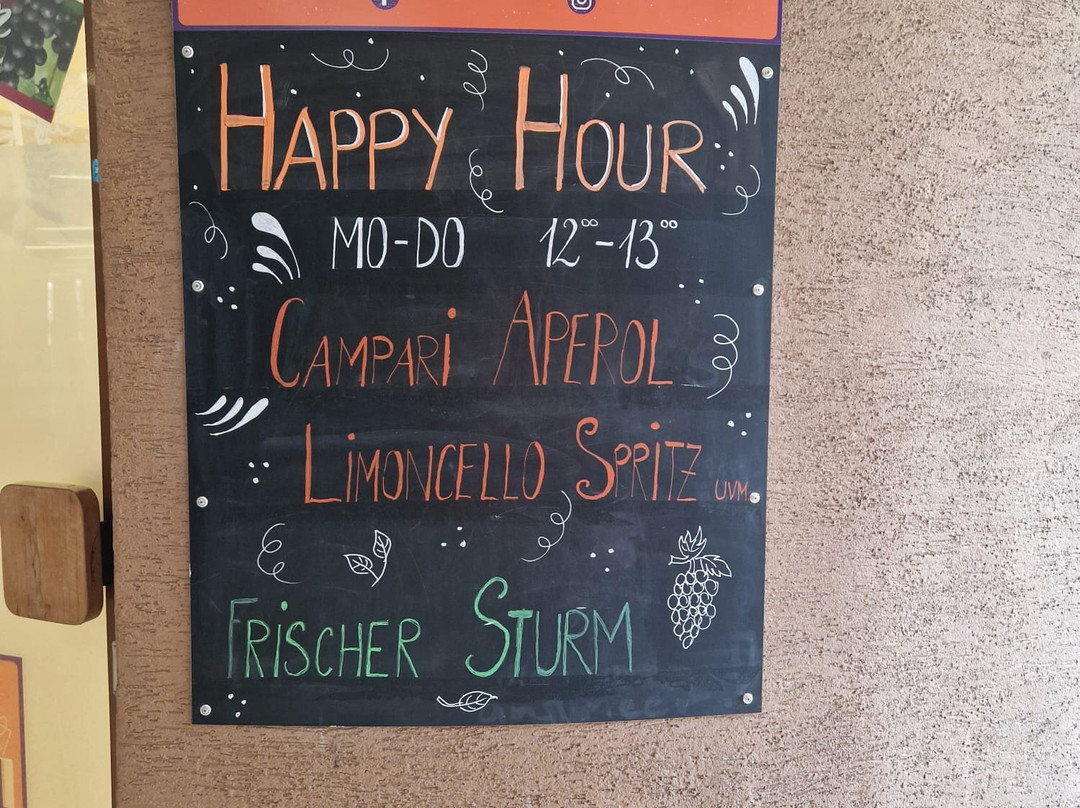 HAPPY HOUR
MO-DO 12⁰⁰-13⁰⁰
CAMPARi APEROL
LiMONCELLO SPRiTZ UVM.
FRiSCHER STURM